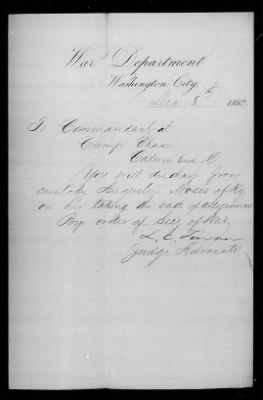 War Department
Washington City,
Dec 5th 1862.
To Commandant at
Camp Chase
Columbus O
You will discharge from
custody Augustus Moses of Ky
on his taking the oath of allegiance
By order of Secy of War
L. C. Turner
Judge Advocate